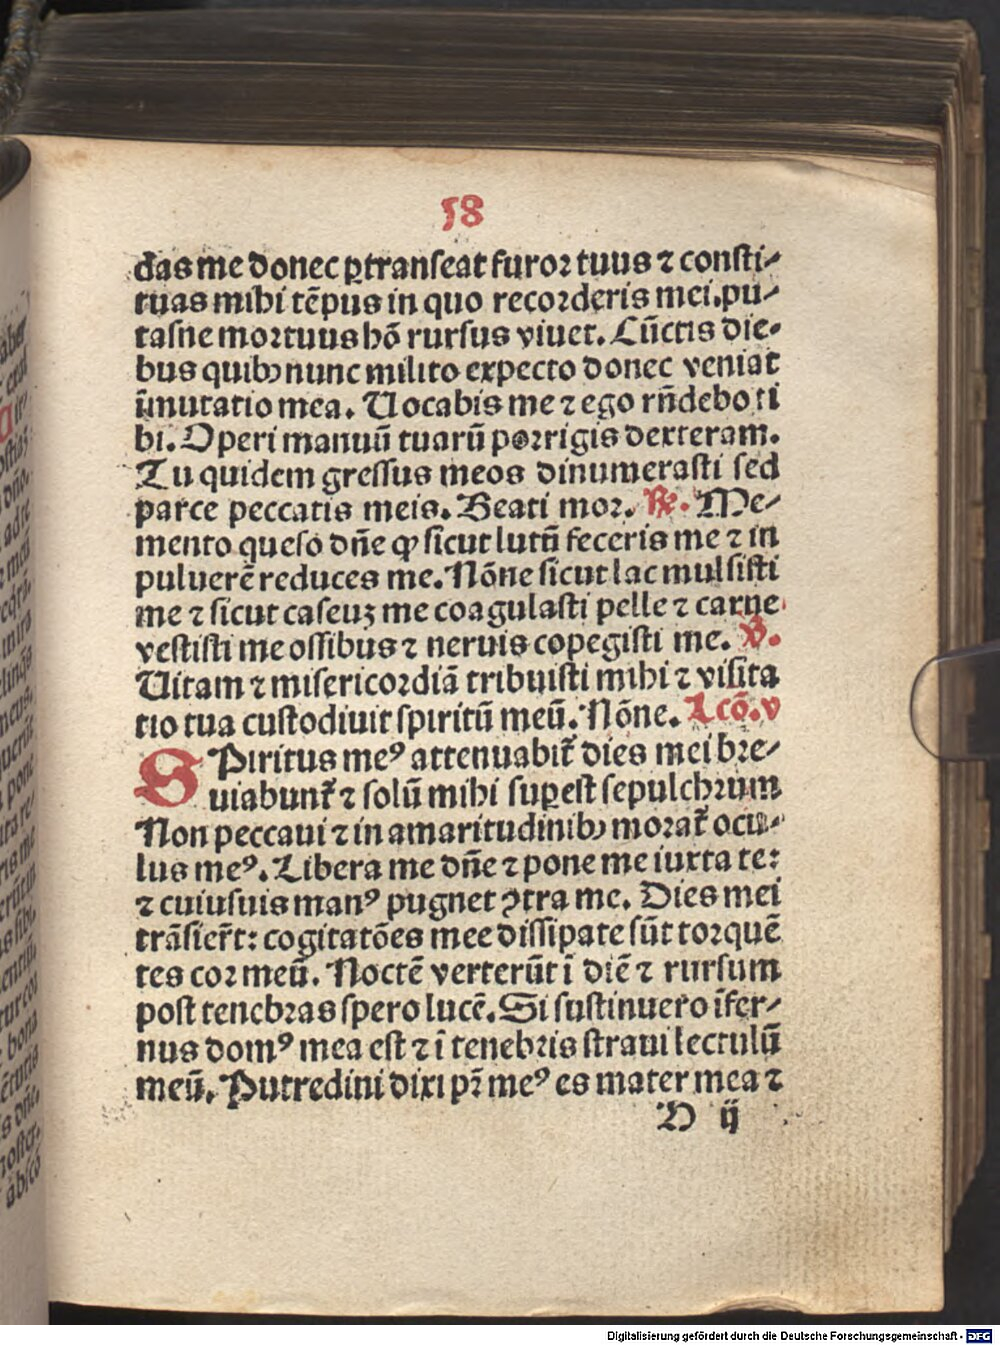 58
das me donec ꝑtranſeat furoꝛ tuus ⁊ conſti⸗
tuas mihi tēpus in quo recoꝛderis mei. pu⸗
taſne moꝛtuus hō rurſus viuet. Cūctis die⸗
bus quibꝫ nunc milito expecto donec veniat
īmutatio mea. Uocabis me ⁊ ego rñdebo ti
bi. Operi manuū tuarū poꝛrigis dexteram.
Tu quidem greſſus meos dinumeraſti ſed
parce peccatis meis. Beati moꝛ. ℟. Me⸗
mento queſo dñe ꝙ ſicut lutū feceris me ⁊ in
puluerē reduces me. Nōne ſicut lac mulſiſti
me ⁊ ſicut caſeuꝫ me coagulaſti pelle ⁊ carne
veſtiſti me oſſibus ⁊ neruis copegiſti me. ℣.
Uitam ⁊ miſericoꝛdiā tribuiſti mihi ⁊ viſita
tio tua cuſtodiuit ſpiritū meū. Nōne. Lcō. v
SPiritus meꝰ attenuabit᷑ dies mei bꝛe⸗
uiabunt᷑ ⁊ ſolū mihi ſuꝑeſt ſepulchꝛum
Non peccaui ⁊ in amaritudinibꝫ moꝛat᷑ ocu⸗
lus meꝰ. Libera me dñe ⁊ pone me iuxta te:
⁊ cuiuſuis manꝰ pugnet ꝯtra me. Dies mei
trāſier̄t: cogitatōes mee diſſipate ſūt toꝛquē
tes coꝛ meū. Noctē verterūt ī diē ⁊ rurſum
poſt tenebꝛas ſpero lucē. Si ſuſtinuero īfer⸗
nus domꝰ mea eſt ⁊ ī tenebꝛis ſtraui lectulū
meū. Putredini dixi pr̄ meꝰ es mater mea ⁊
D ij
Digitalisierung gefördert durch die Deutsche Forschungsgemeinschaft - DFG